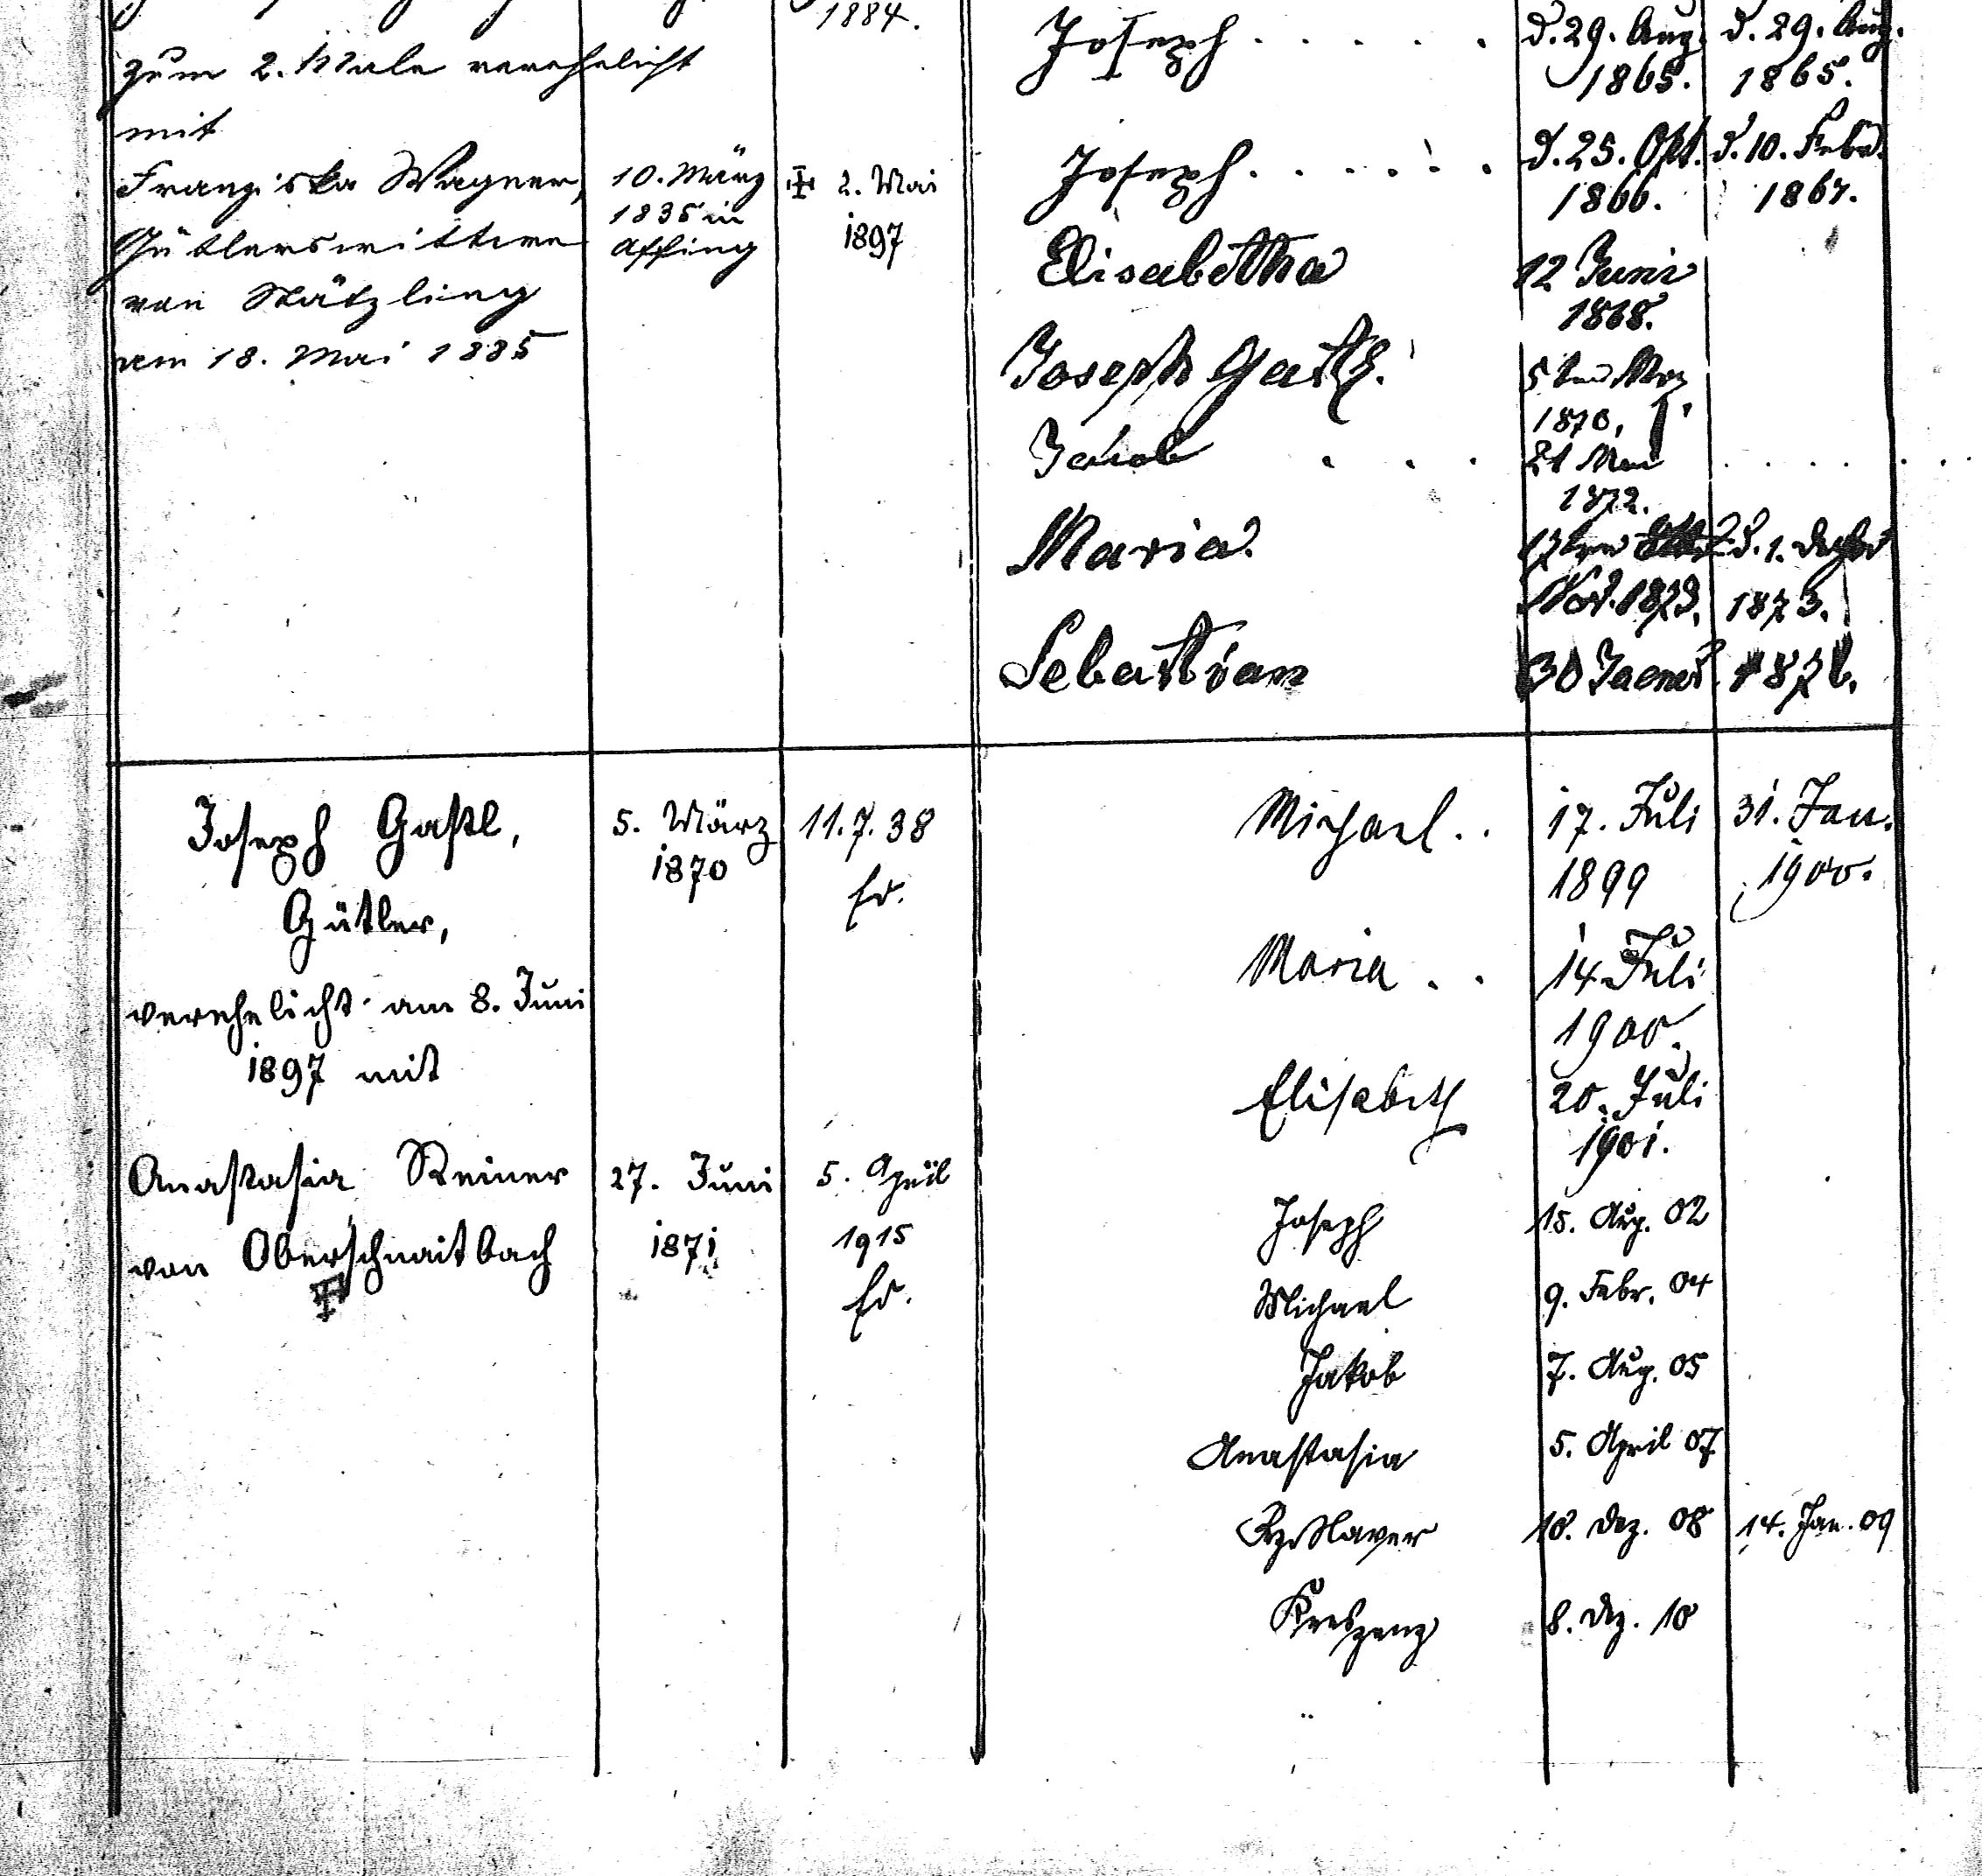 1884.
zum 2. Male verehelicht
mit
Franziska Wagner,
Gütlerswittwe
von Stätzling
am 18. Mai 1885
10. März
1835 in
Affing
2. Mai
1897
Joseph . . . . . d. 29. Aug. d. 29. Aug.
1865. 1865.
Joseph. . . . . . d. 25. Okt. d. 10. Febr.
1866. 1867.
Elisabetha 12 Juni
1868.
Joseph 5
1870,
Jakob . . . 21 Mai
1872.
Maria. d. 1.
Nov. 1873. 1873.
Sebastian 30
Joseph Gastl,
Gütler,
verehelicht am 8. Juni
1897 mit
Anastasia Reiner
von Oberschnaitbach
5. März
1870
11. 7. 38
27. Juni
1871
5. April
1915
Michael . . 17. Juli 31. Jan.
1899 1900.
Maria . . 14. Juli
1900.
Elisabeth 20. Juli
1901.
Joseph 15. Aug. 02
Michael 9. Febr. 04
Jakob 7. Aug. 05
Anastasia 5. April 07
Xaver 10. Dez. 08 14. Jan. 09
Kreszenz 8. Dez. 10